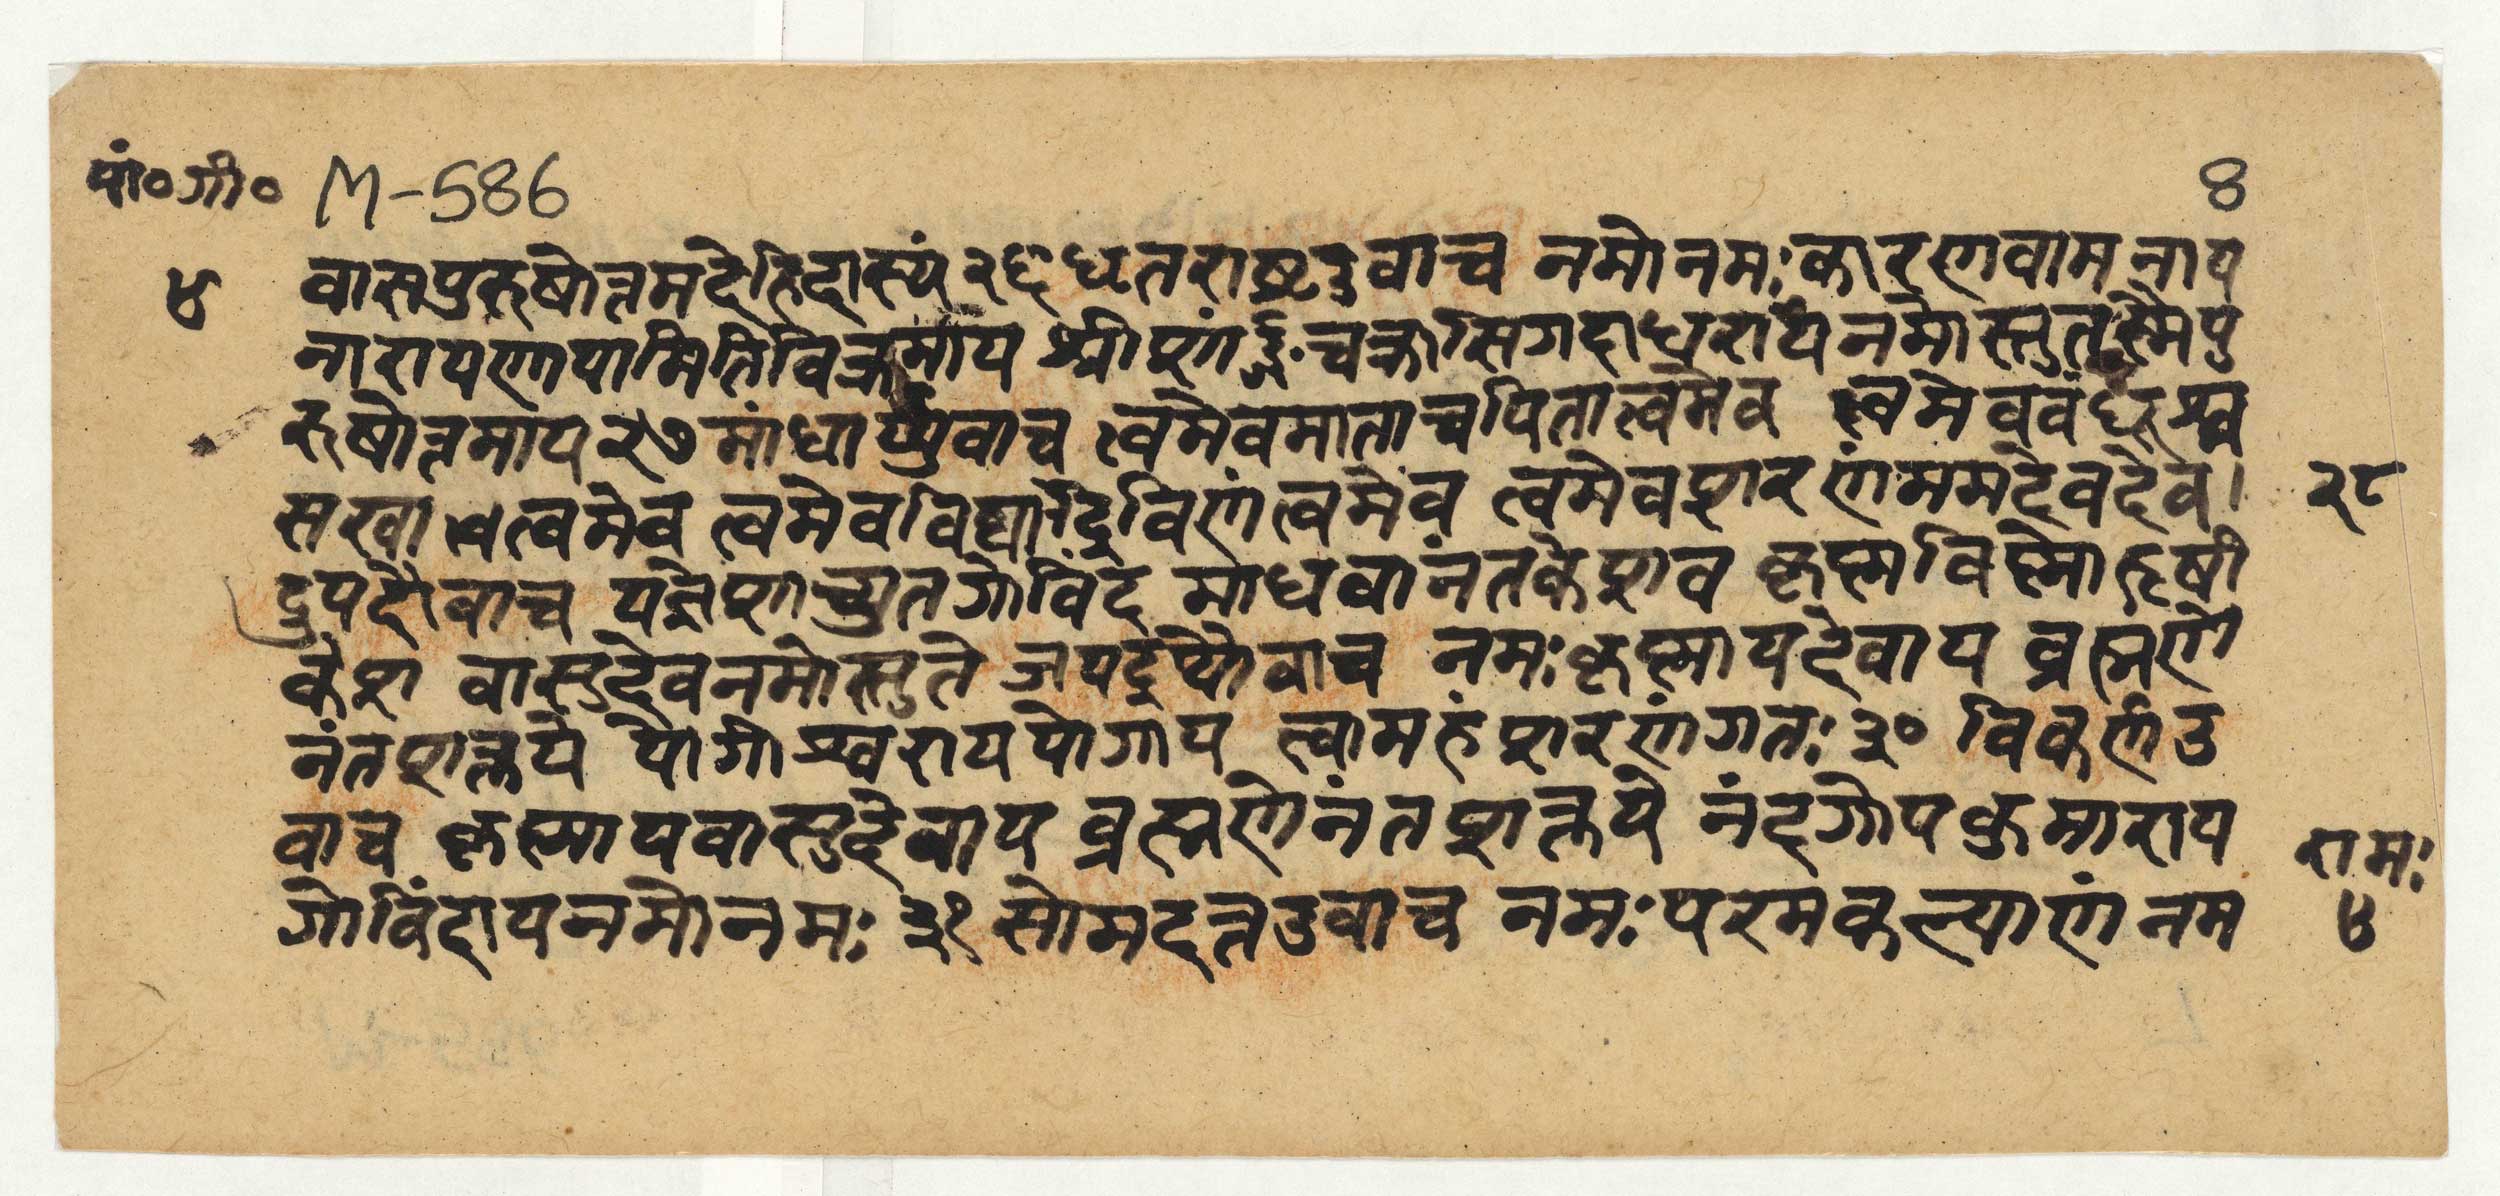 पां०गी० M-586 8
४ वासपुरुषोत्तमदेहिदास्यं २६ धृतराष्ट्रउवाच नमोनमःकारणवामनाय
नारायणायामितिविक्रमाय श्रीशार्ङ्गचक्रासिगदाधरायनमोस्तुतस्मैपु
रुषोत्तमाय २७ गांधार्य्युवाच त्वमेवमाताचपितात्वमेव त्वमेवबंधुश्च
सखात्वमेव त्वमेवविद्याद्रविणंत्वमेव त्वमेवशरणंममदेवदेव। २८
द्रुपदोवाच यज्ञेशाच्युतगोविंद माधवानंतकेशव कृष्णविष्णोहृषी
केश वासुदेवनमोस्तुते जयद्रथोवाच नमःकृष्णायदेवाय ब्रह्मणे
नंतशक्तये योगीश्वराययोगाय त्वामहंशरणंगतः ३० विकर्णउ
वाच कृष्णायवासुदेवाय ब्रह्मणेनंतशक्तये नंदगोपकुमाराय
रामः
गोविंदायनमोनमः ३१ सोमदत्तउवाच नमःपरमकल्याणंनम ४